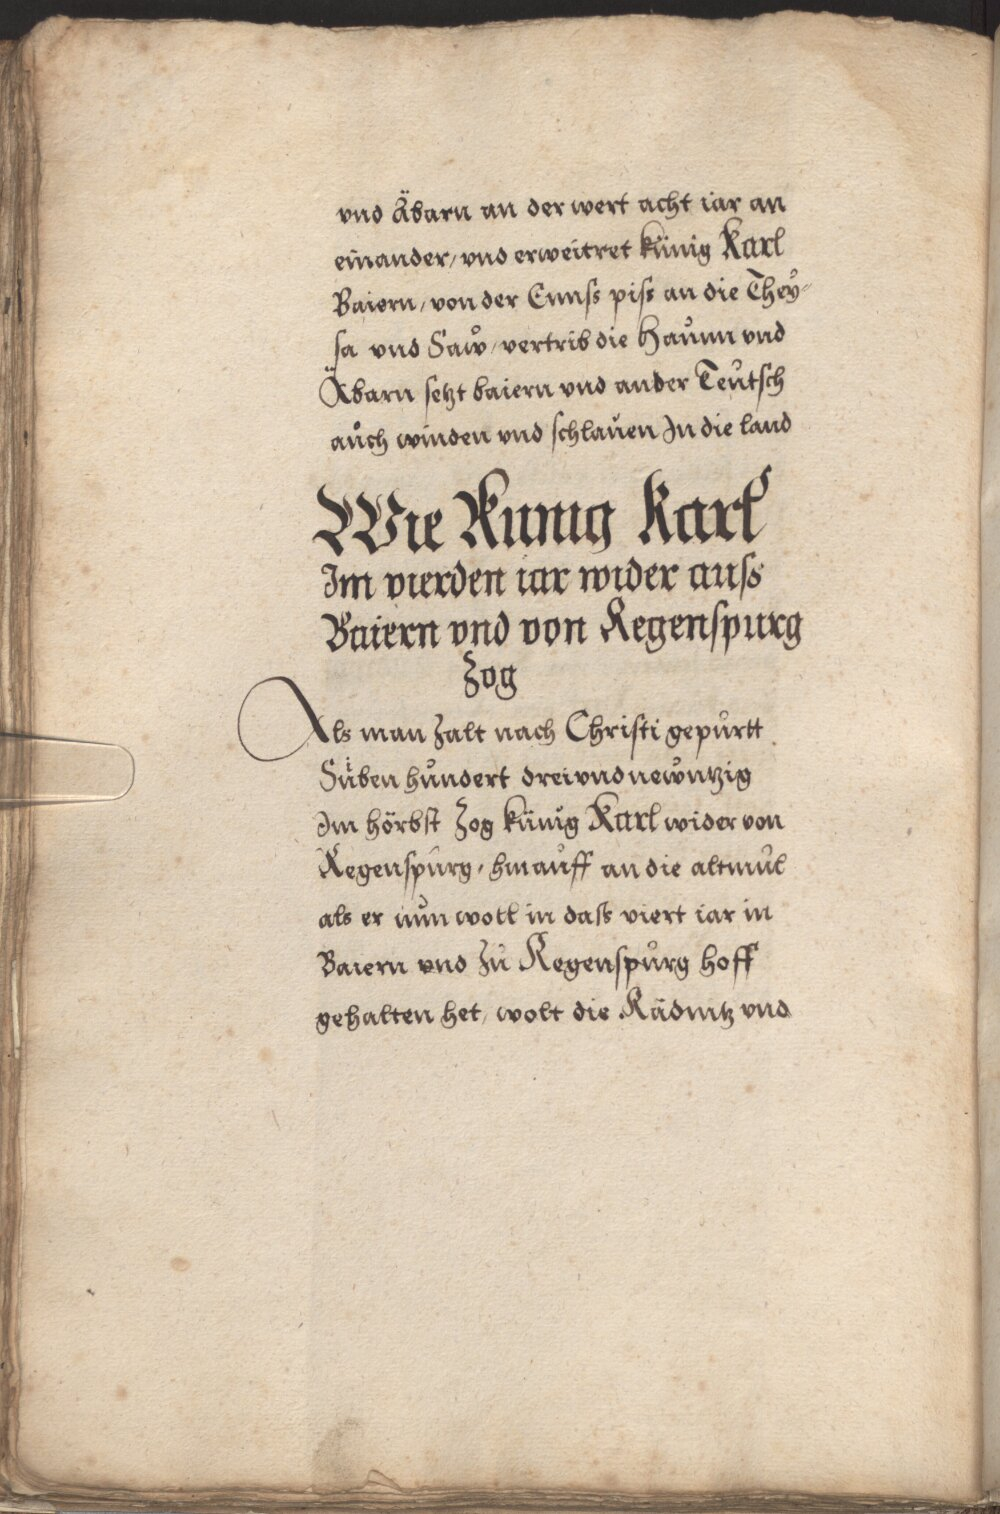 vnd Äbarn an der wert acht iar an
einander/ vnd erweitret künig Karl
Baiern/ von der Ennss piss an die Theÿ⸗
sa vnd Saẘ/ vertrib die Haůnn vnd
Äbarn setzt baiern vnd ander Teůtsch
aůch winden vnd schlaůen In die land
Wie Kunig Karl
Im vierden iar wider auss
Baiern vnd von Regenspurg
Zog
Als man Zalt nach Christi gepůrtt
Süben hůndert drei vnd neẘntzig
Im hörbst Zog künig Karl wider von
Regenspůrg/ hinaůff an die altmůl
als er nůn woll in dass viert iar in
Baiern vnd Zů Regenspůrg hoff
gehalten het/ wolt die Rädnitz vnd